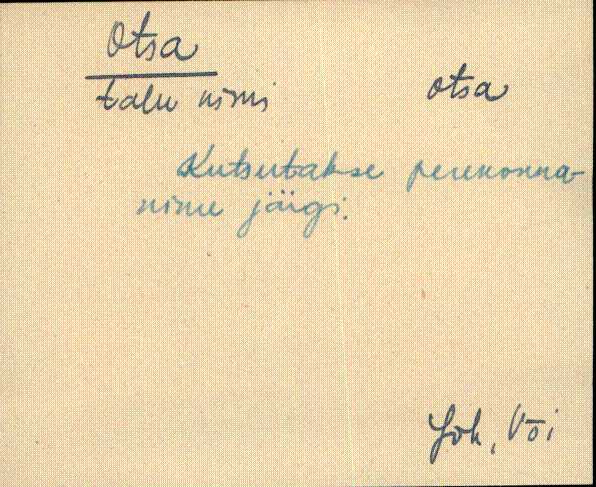 Otsa
talu nimi otsa
Kutsutakse perekonna-
nime järgi.
Jõh, Või